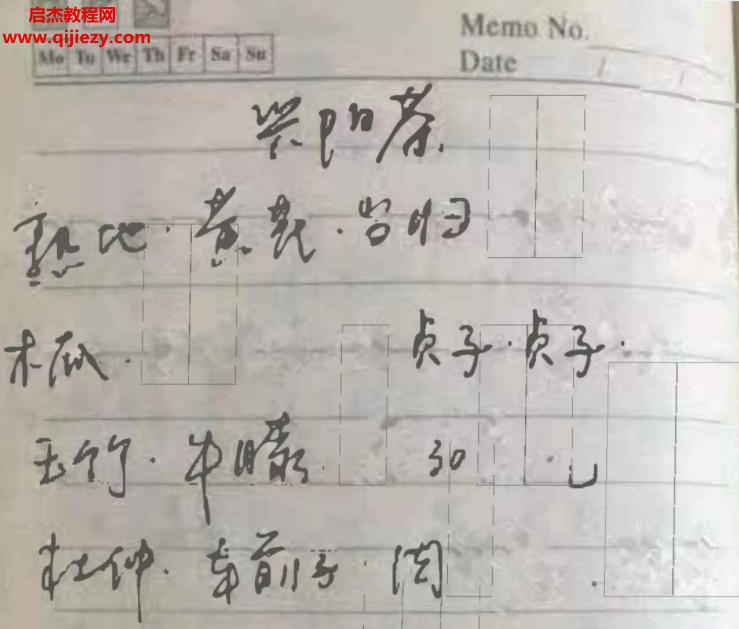 启杰教程网
www.qijiezy.com
Memo No.
Mo Tu We Th Fr Sa Su
Date / /
兴阳茶
熟地·黄芪·当归
木瓜· 贞子·贞子·
玉竹·牛膝 30
杜仲·车前子·肉